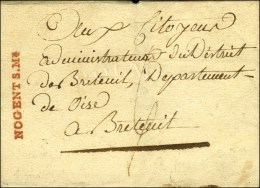 Aux Citoyens
administrateurs du District
de Breteuil, Département
de Oise
a Breteuil
NOGENT S.Mᵉ